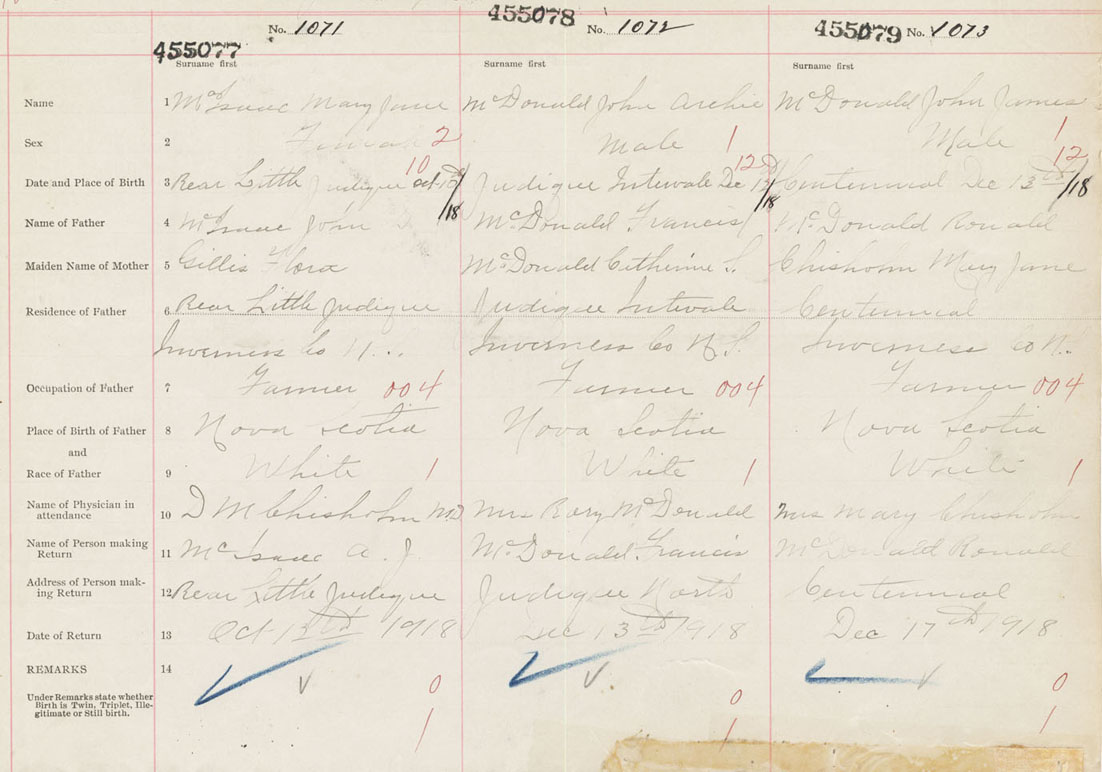 455077 No. 1071
455078 No. 1072
455079 No. 1073
Surname first Surname first Surname first
Name 1 McIsaac Mary Jane McDonald John Archie McDonald John James
Sex 2 Female 2 Male 1 Male 1
10 12 12
Date and Place of Birth 3 Rear Little Judique Oct /18 Judique Intervale De /18 Centennial Dec 13 /18
Name of Father 4 McIsaac John McDonald Francis McDonald Ronald
Maiden Name of Mother 5 Gillis Flora McDonald Catherine S. Chisholm Mary Jane
Residence of Father 6 Rear Little Judique Judique Intervale Centennial
Inverness Co N. Inverness Co N. S. Inverness Co N.
Occupation of Father 7 Farmer 004 Farmer 004 Farmer 004
Place of Birth of Father 8 Nova Scotia Nova Scotia Nova Scotia
and
Race of Father 9 White 1 White 1 White 1
Name of Physician in
attendance 10 D M Chisholm MD Mrs Rory McDonald Mrs Mary Chisholm
Name of Person making
Return 11 McIsaac A. J. McDonald Francis McDonald Ronald
Address of Person mak-
ing Return 12 Rear Little Judique Judique North Centennial
Date of Return 13 Oct 1918 Dec 13th 1918 Dec 17th 1918
REMARKS 14
0 0 0
Under Remarks state whether
Birth is Twin, Triplet, Ille-
gitimate or Still birth.
1 1 1